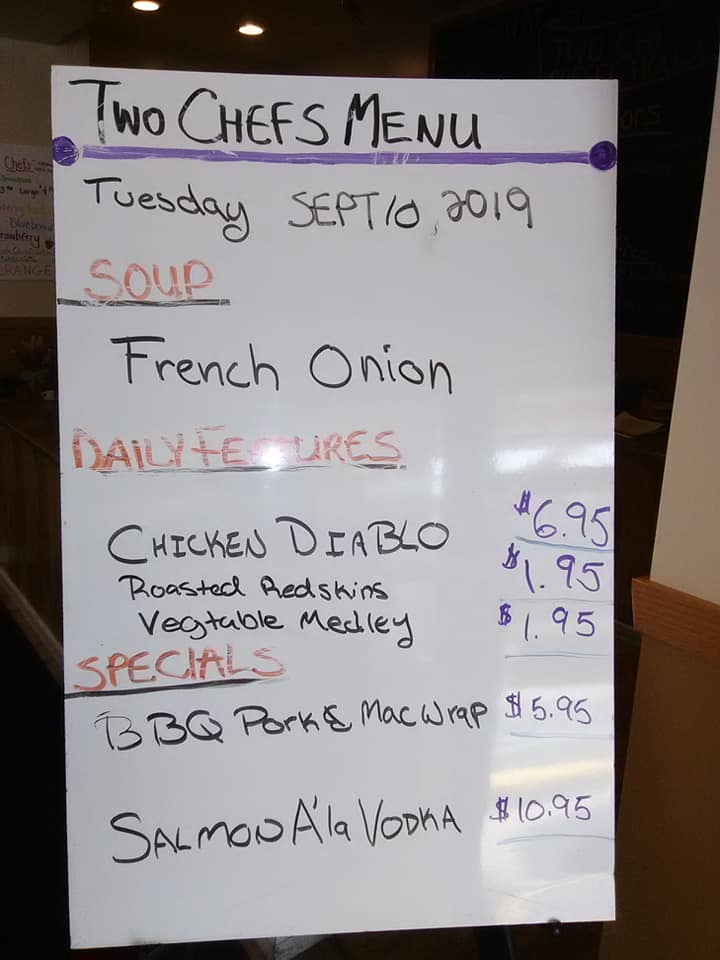 TWO CHEFS MENU
Tuesday SEPT 10, 2019
SOUP
French Onion
DAILY FEATURES
CHICKEN DIABLO $6.95
Roasted Redskins $1.95
Vegtable Medley $1.95
SPECIALS
BBQ Pork & Mac Wrap $5.95
SALMON A'la VODKA $10.95